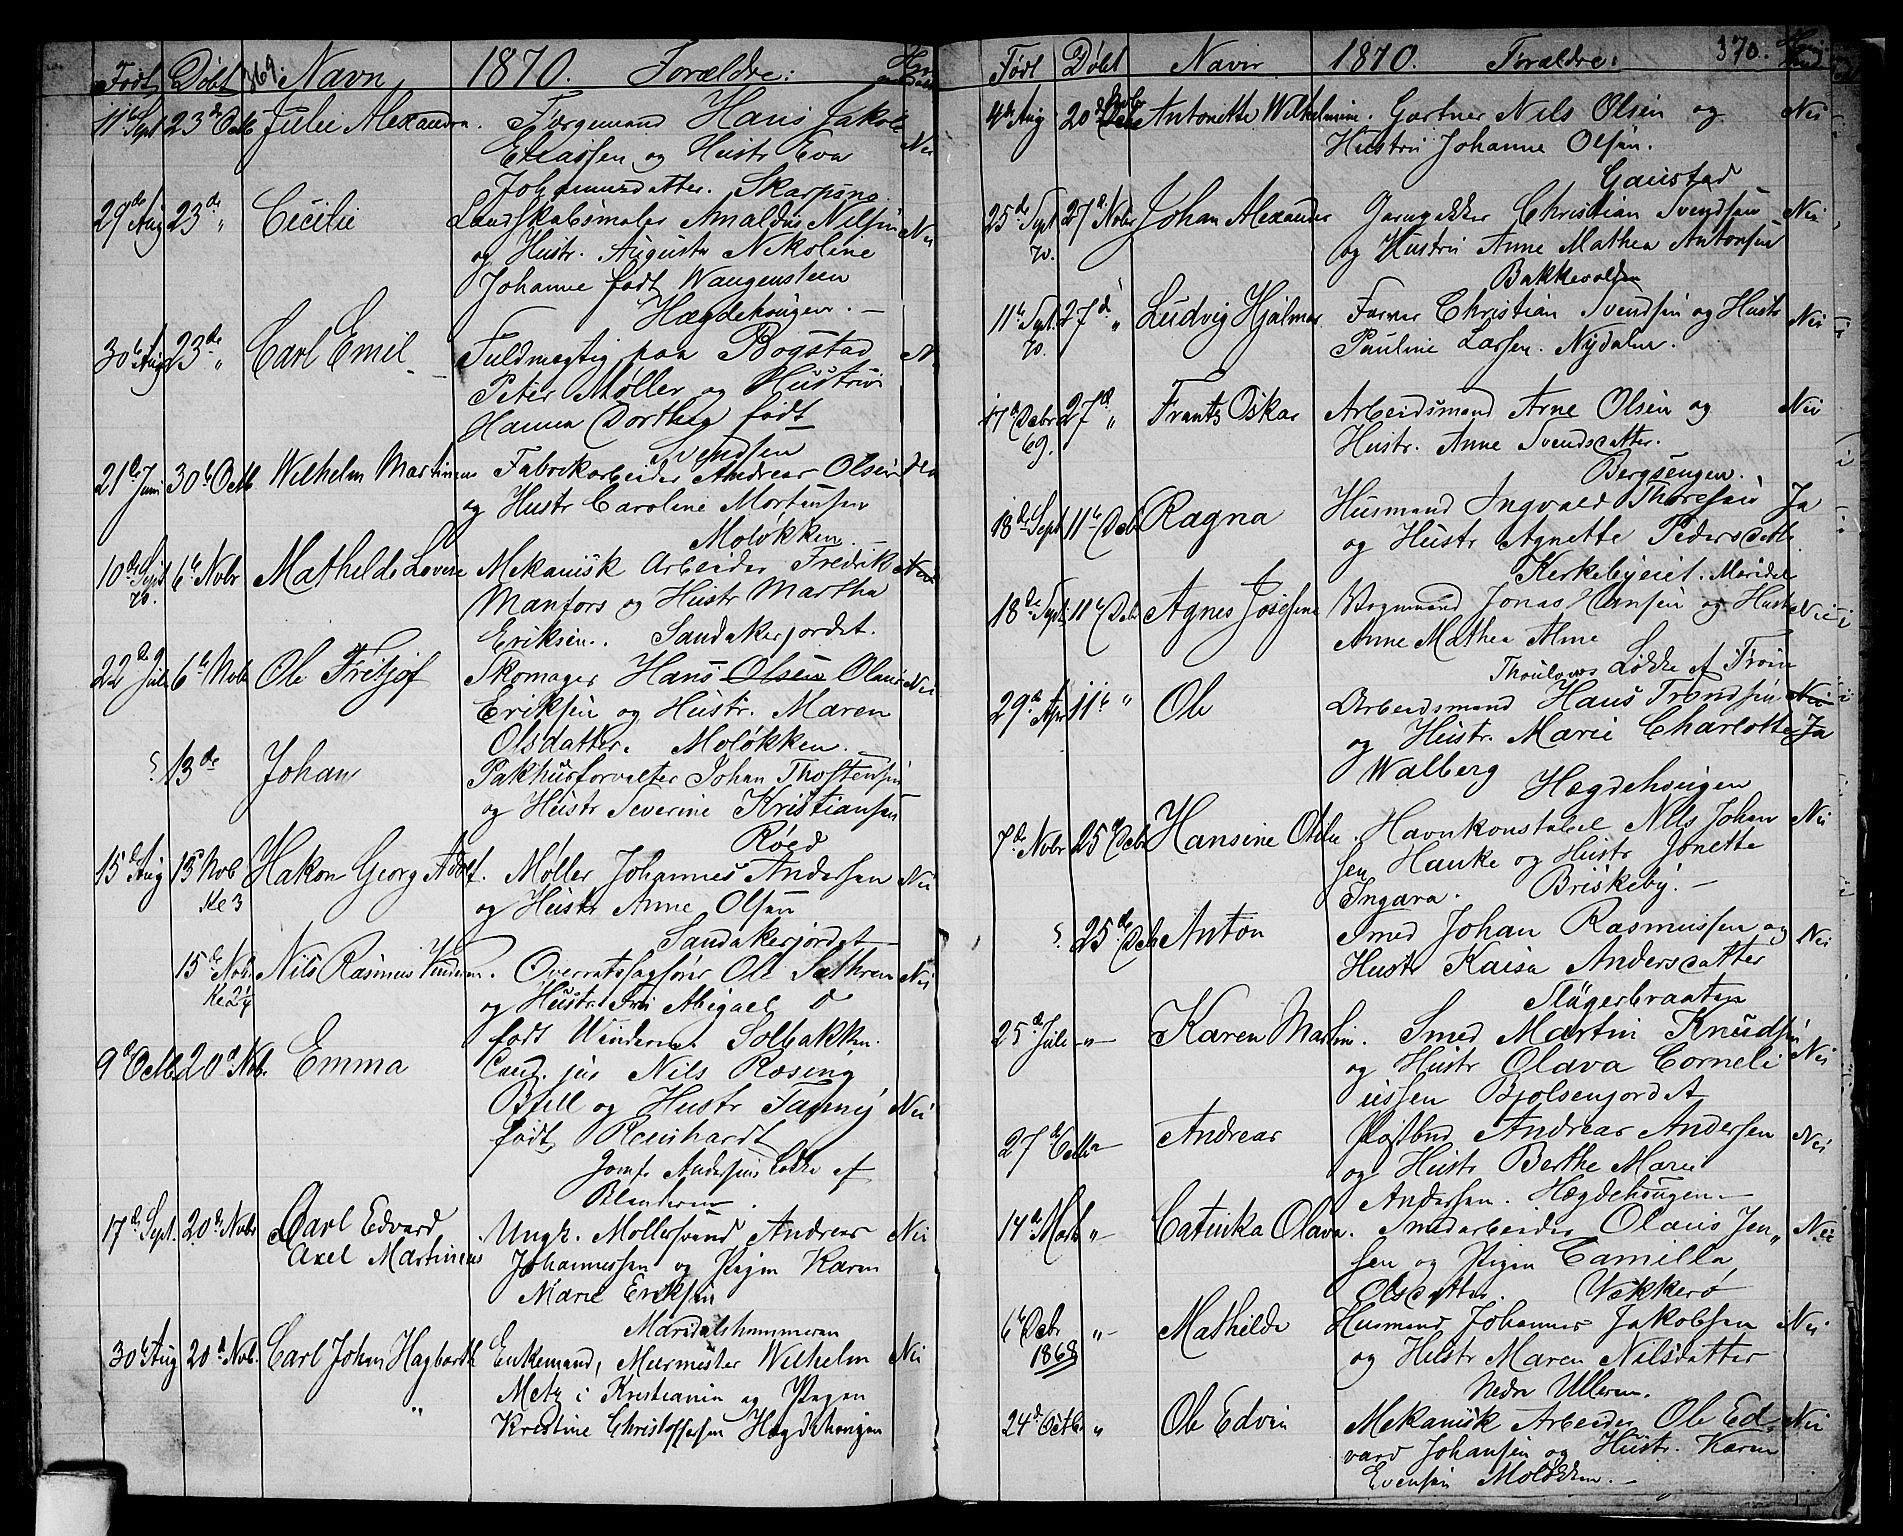 Født Døbt 369. Navn 1870. Forældre:
11te Sept 23de Octb Julie Alexandra. Færgemand Hans Jakob
Eliassen og Hustr Eva Nei
Johannesdatter. Skarpsno
29de Aug 23de " Cecilie Landskabsmaler Amaldus Nilsen Nei
og Hustr. Augusta Nikoline
Johanne født Wangensteen
Hægdehougen. —
30te Aug 23de " Carl Emil Fuldmægtig paa Bogstad N.
Peter Møller og Hustru
Hanna Dorthea født
Svendsen
21de Juni 30te Octb. Wilhelm Martinius Fabrikarbeider Andreas Olsen
og Hustr Caroline Mortensen
Moløkken. —
10de Sept 70. 6te Nobr Mathilde Lovise Mekanisk Arbeider Fredrik Nei
Manfors og Hustr Martha
Eriksen. Sandakerjordet.
22de Juli 6te Nob Ole Fritjof Skomager Hans Olsen Olaus Nei
Eriksen og Hustr. Maren
Olsdatter. Moløkken.
13de Johan Pakhusforvalter Johan Thostensen
og Hustr Severine Kristiansen
Røed
15de Aug 15 Nob Hakon Georg Adolf. Møller Johannes Andersen Nei
Ke 3 og Hustr Anne Olsen
Sandakerjordet —
15de Nobr Nils Rasmus Vinderen. Overretssagfører Ole Sæthren Nei
og Hustr Fru Abigael
født Winderen Solbakken.
9de Octb 20d Nob. Emma Cand. jur Nils Rosing
Bull og Hustr Fanny Nei
født Reinhardt
Jomf. Andersens Løkke af
Blinderen.
17de Sept. 20de Nobr Carl Edvard Ungk. Møllersvend Andreas Nei
Axel Martinius Johannessen og Pigen Karen
Marie Eriksen
Maridalshammeren
30te Aug 20d Nob. Carl Johan Hagbarth Enkemand, Muurmester Wilhelm Nei
" Metz i Kristiania og Pigen
Kristine Christoffersen Hægdehougen
Født Døbt Navn 1870. Forældre: 370.
4de Aug 20d Nobr Antonette Wilhelmine. Gartner Nils Olsen og Nei
Hustru Johanne Olsen.
Gaustad
25de Sept 70. 27d. Nobr Johan Alexander Garnpakker Christian Svendsen Nei
og Hustru Anne Mathea Antonsen
Bakkevolden
11te Sept. 70. 27d " Ludvig Hjalmar Farver Christian Svendsen og Hustr Nei
Pauline Larsen. Nydalen.
17d Debr 69. 27d " Frants Oskar Arbeidsmand Arne Olsen og Nei
Hustr. Anne Svendsdatter.
Bergsengen.
18de Sept 11te Deb Ragna Husmand Ingvald Thoresen Ja
og Hustr Agnette Pedersdatt.
Kirkebyeiet. Maridal
18de Sept. 11te Debr Agnes Josefine Vognmand Jonas Hansen og Hust Nei
Anne Mathea Alme
Thoulovs Løkke af Frøn
29de Apr 11te " Ole Arbeidsmand Hans Trondsen Nei
og Hustr. Marie Charlotte Ja
Walberg Hægdehougen
7de Nobr 25de Debr Hansine Otilie. Havnkonstabel Nils Johan Nei
sen Hauke og Hustr Jonette
Ingara. Briskeby. —
25de Deb Anton Smed Johan Rasmussen og Nei
Hustr Kaisa Andersdatter
Slagerbraaten
25de Juli —"— Karen Martine. Smed Martin Knudsen
og Hustr Olava Corneli Nei
ussen Bjølsenjordet
27de Octb —"— Andreas Postbud Andreas Andersen Nei
og Hustr Berthe Marie
Andersen. Hægdehougen —
14de Marts —"— Catinka Olava. Smedarbeider Olaus Jen„ Nei
sen og Pigen Camilla
Olsdatter. Vækkerø
6te Debr 1868 —"— Mathilde Husmand Johannes Jakobsen Nei
og Hustr Maren Nilsdatter
Nedre Ullern.
24d Octb. " Ole Edvin Mekanisk Arbeider Ole Ed„ Nei
vard Johansen og Hustr. Karen
Evensen Moløkken. —